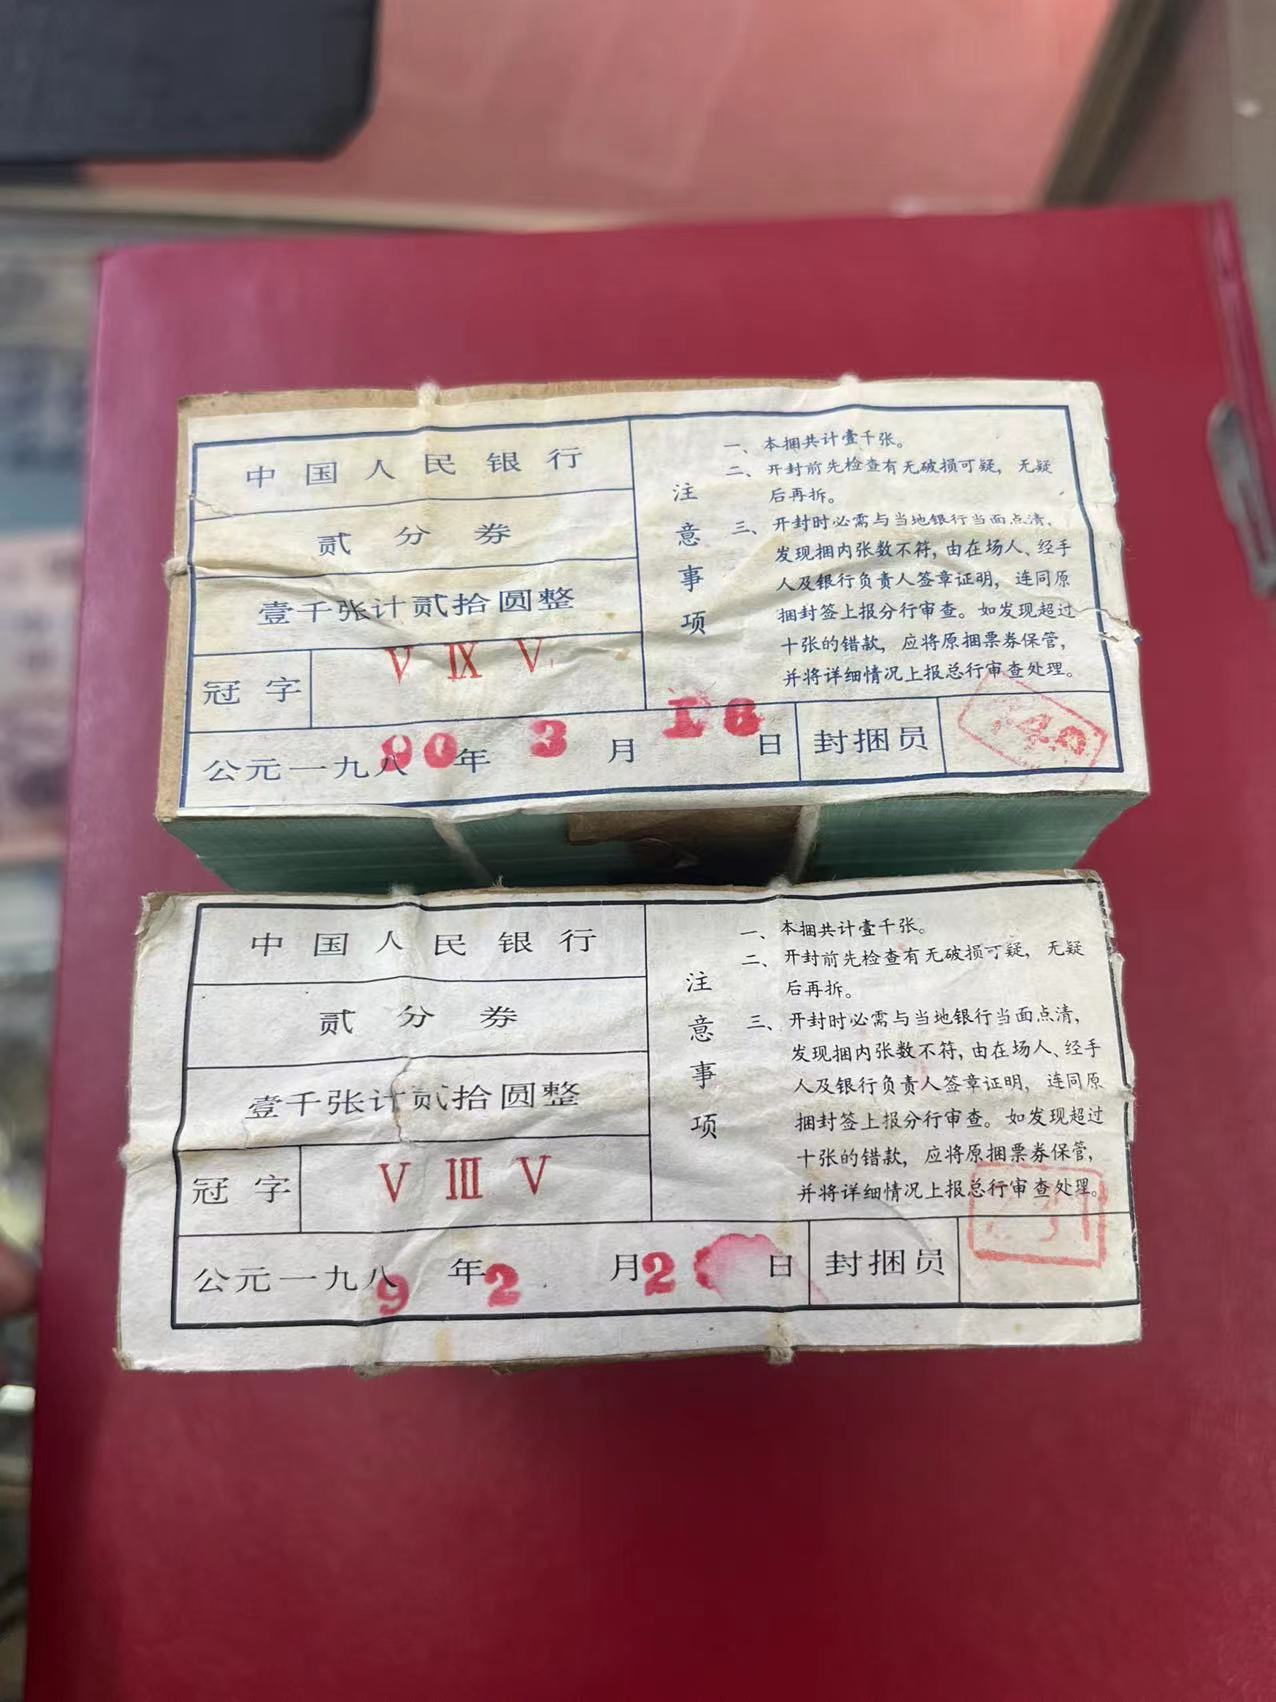 中国人民银行
贰分券
壹千张计贰拾圆整
冠字 V IX V
公元一九八90年3月16日
封捆员
注意事项
一、本捆共计壹千张。
二、开封前先检查有无破损可疑，无疑
后再拆。
三、开封时必需与当地银行当面点清，
发现捆内张数不符，由在场人、经手
人及银行负责人签章证明，连同原
捆封签上报分行审查。如发现超过
十张的错款，应将原捆票券保管，
并将详细情况上报总行审查处理。
中国人民银行
贰分券
壹千张计贰拾圆整
冠字 V III V
公元一九八9年2月2日
封捆员
注意事项
一、本捆共计壹千张。
二、开封前先检查有无破损可疑，无疑
后再拆。
三、开封时必需与当地银行当面点清，
发现捆内张数不符，由在场人、经手
人及银行负责人签章证明，连同原
捆封签上报分行审查。如发现超过
十张的错款，应将原捆票券保管，
并将详细情况上报总行审查处理。